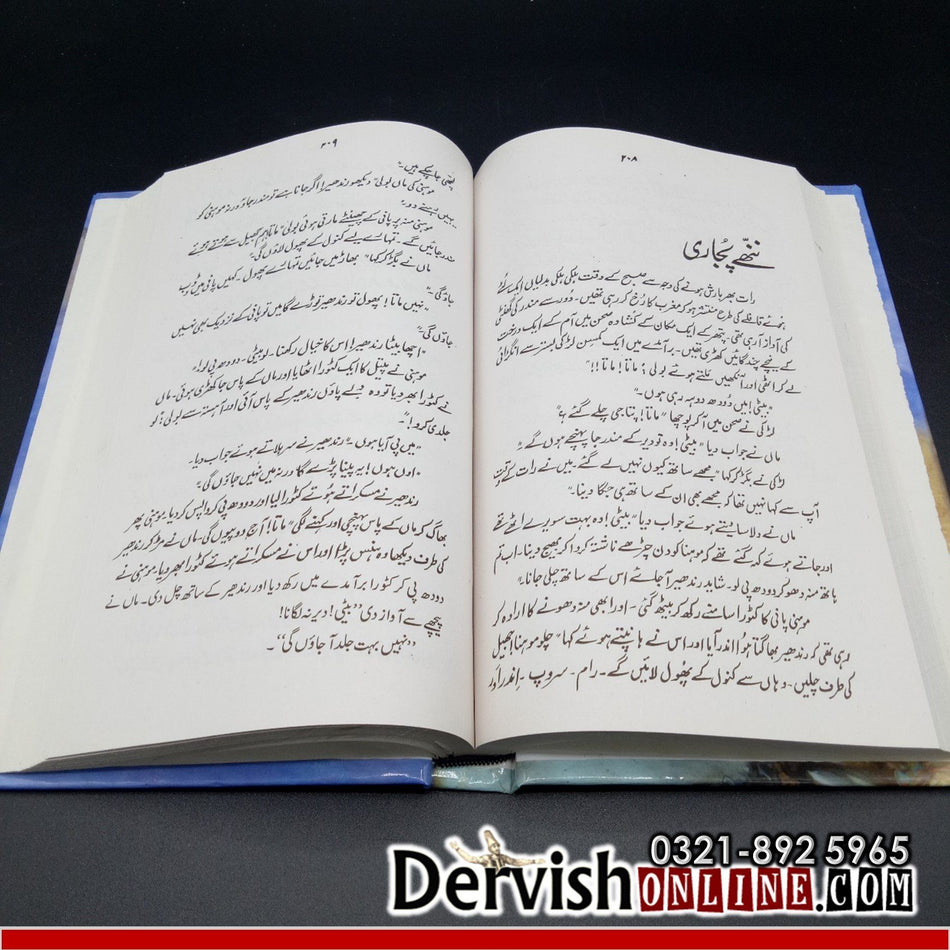 ۲۰۸
ننھے پُجاری
رات بھر بارش ہونے کی وجہ سے صبح کے وقت ہلکی ہلکی بدلیاں ایک لُٹے
ہوئے قافلے کی طرح منتشر ہو کر مغرب کا رُخ کر رہی تھیں۔ دُور سے مندر کی گھنٹی
کی آواز آ رہی تھی۔ پتھر کے ایک مکان کے کشادہ صحن میں آم کے ایک درخت
کے نیچے چند گائیں کھڑی تھیں۔ برآمدے میں ایک کمسِن لڑکی بستر سے انگڑائی
لے کر اُٹھی اور آنکھیں مَلتے ہوئے بولی: ماتا! ماتا!!"
"بیٹی! میں دُودھ دوہ رہی ہوں۔"
لڑکی نے صحن میں آ کر پوچھا "ماتا! پتا جی چلے گئے؟"
ماں نے جواب دیا "بیٹی! وہ تو دیر کے مندر جا پہنچے ہوں گے۔"
لڑکی نے بگڑ کر کہا "مجھے ساتھ کیوں نہیں لے گئے۔ میں نے رات کے وقت
آپ سے کہا نہیں تھا کہ مجھے بھی ان کے ساتھ ہی جگا دینا۔"
ماں نے دلاسا دیتے ہوئے جواب دیا "بیٹی! وہ بہت سویرے اٹھے تھے
اور جاتے ہوئے کہہ گئے تھے کہ موہنا کو دن چڑھے ناشتہ کروا کر بھیج دینا۔ اب تم
ہاتھ منہ دھو کر دودھ پی لو۔ شاید رندھیر آ جائے اس کے ساتھ چلی جانا۔"
موہنی پانی کا کٹورا سامنے رکھ کر بیٹھ گئی۔ اور ابھی منہ دھونے کا ارادہ کر
رہی تھی کہ رندھیر بھاگتا ہوا اندر آیا اور اس نے ہانپتے ہوئے کہا "چلو موہنا! جھیل
کی طرف چلیں۔ وہاں سے کنول کے پھُول لائیں گے۔ رام۔ سروپ۔ اِندر اور
۲۰۹
پتی جا چکے ہیں۔"
موہنی کی ماں بولی "دیکھو رندھیر! اگر جانا ہے تو مندر جاؤ ورنہ موہنی کو
یہیں رہنے دو۔"
موہنی منہ پر پانی کے چھینٹے مارتی ہوئی بولی "ماتا! ہم جھیل سے ہوتے ہوئے
مندر جائیں گے۔ تمہارے لیے کنول کے پھول لاؤں گی۔"
ماں نے بگڑ کر کہا "بھاڑ میں جائیں تمہارے پھول۔ کہیں پانی میں ڈوب
جاؤ گی۔"
"نہیں ماتا! پھول تو رندھیر توڑے گا میں تو پانی کے نزدیک بھی نہیں
جاؤں گی۔"
"اچھا بیٹا رندھیر! اس کا خیال رکھنا۔ لو بیٹی۔ دودھ پی لو۔"
موہنی نے پیتل کا ایک کٹورا اٹھایا اور ماں کے پاس جا کھڑی ہوئی۔ ماں
نے کٹورا بھر دیا تو وہ دبے پاؤں رندھیر کے پاس آئی اور آہستہ سے بولی: لو
جلدی کرو!"
"میں پی آیا ہوں۔" رندھیر نے سر ہلاتے ہوئے جواب دیا۔
"اوں ہوں! یہ پینا پڑے گا ورنہ میں نہیں جاؤں گی۔"
رندھیر نے مسکراتے ہوئے کٹورا لیا اور دودھ پی کر واپس کر دیا۔ موہنی پھر
بھاگ کر ماں کے پاس پہنچی اور کہنے لگی "ماتا! آج دو پیوں گی۔ ماں نے مڑ کر رندھیر
کی طرف دیکھا وہ ہنس پڑا اور اس نے مسکراتے ہوئے کٹورا بھر دیا۔ موہنی نے
دودھ پی کر کٹورا برآمدے میں رکھ دیا اور رندھیر کے ساتھ چل دی۔ ماں نے
پیچھے سے آواز دی "بیٹی! دیر نہ لگانا!
"نہیں بہت جلد آ جاؤں گی"۔
0321-892 5965
DervishONLINE.COM